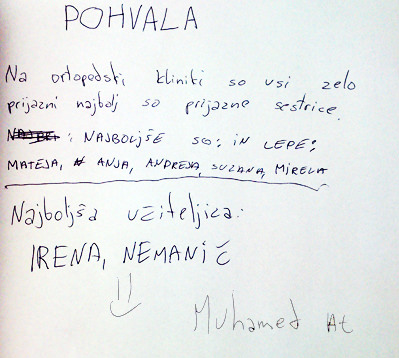 POHVALA
Na ortopedski kliniki so vsi zelo
prijazni najbolj so prijazne sestrice.
: NAJBOLJŠE SO: IN LEPE:
MATEJA, ANJA, ANDREJA, SUZANA, MIRELA
Najboljša učiteljica:
IRENA, NEMANIČ
Muhamed At